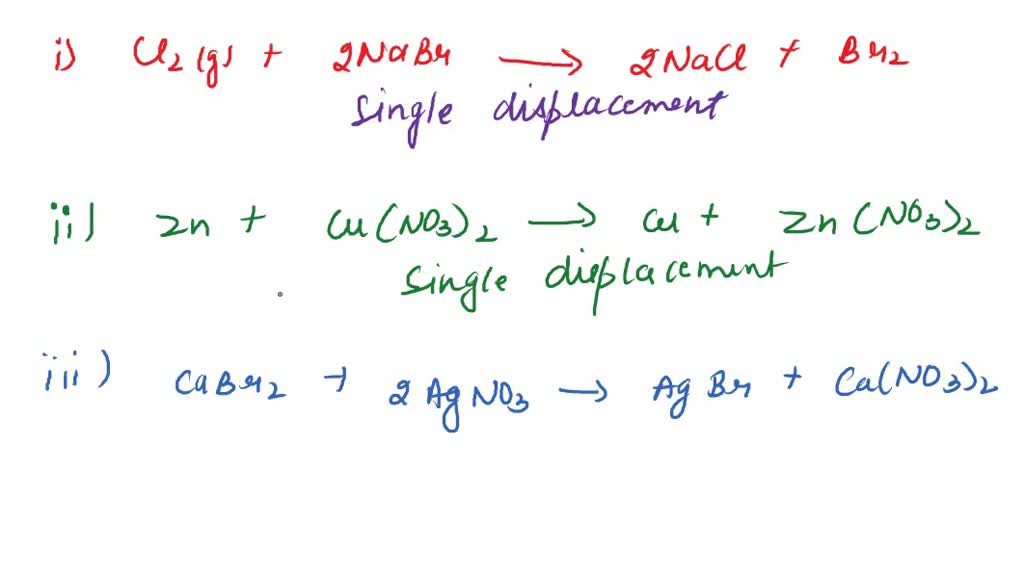 i) Cl2 (g) + 2NaBr → 2NaCl + Br2
single displacement
ii) Zn + Cu(NO3)2 → Cu + Zn(NO3)2
single displacement
iii) CaBr2 + 2AgNO3 → AgBr + Ca(NO3)2